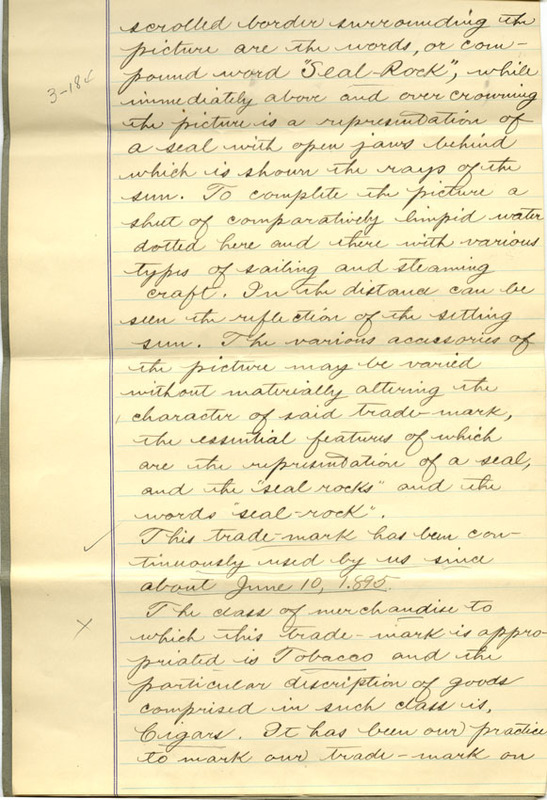 scrolled border surrounding the
picture are the words, or com-
pound word "Seal-Rock", while
immediately above and over crowning
the picture is a representation of
a seal with open jaws behind
which is shown the rays of the
sun. To complete the picture a
shut of comparatively limpid water
dotted here and there with various
types of sailing and steaming
craft. In the distance can be
seen the reflection of the setting
sun. The various accessories of
the picture may be varied
without materially altering the
character of said trade-mark,
the essential features of which
are the representation of a seal,
and the "seal rocks" and the
words "seal-rock".
This trade-mark has been con-
tinuously used by us since
about June 10, 1895.
The class of merchandise to
which this trade-mark is appro-
priated is Tobacco and the
particular description of goods
comprised in such class is,
Cigars. It has been our practice
to mark our trade-mark on